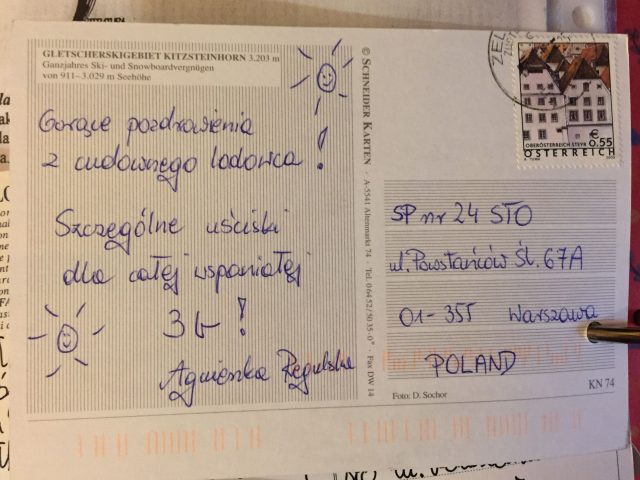 GLETSCHERSKIGEBIET KITZSTEINHORN 3.203 m
Ganzjahres Ski- und Snowboardvergnügen
von 911–3.029 m Seehöhe
Gorące pozdrowienia
z cudownego lodowca!
Szczególne uściski
dla całej wspaniałej
3b!
Agnieszka Regulska
© SCHNEIDER KARTEN · A-5541 Altenmarkt 74 · Tel. 0 64 52/50 35-0* · Fax DW 14
ZELL
OBERÖSTERREICH STEYR
€ 0,55
ÖSTERREICH
SP nr 24 STO
ul. Powstańców Śl. 67A
01-355 Warszawa
POLAND
Foto: D. Sochor
KN 74